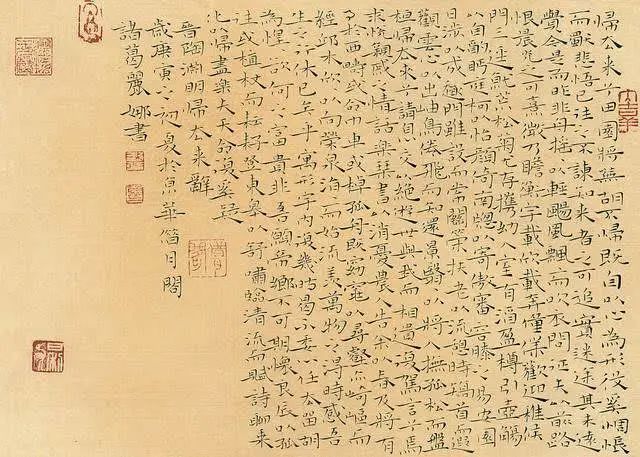 歸去來兮田園將蕪胡不歸既自以心為形役奚惆悵
而獨悲悟已往之不諫知來者之可追實迷途其未遠
覺今是而昨非舟搖搖以輕颺風飄飄而吹衣問征夫以前路
恨晨光之熹微乃瞻衡宇載欣載奔僮僕歡迎稚候
門三逕就荒松菊猶存攜幼入室有酒盈樽引壺觴
以自酌眄庭柯以怡顏倚南窗以寄傲審容膝之易安園
日涉以成趣門雖設而常關策扶老以流憩時矯首而遐
觀雲心以出岫鳥倦飛而知還景翳翳以將入撫孤松而盤
桓歸去來兮請息交以絕游世與我而相遺復駕言兮焉
求悅親戚之情話樂琴書以消憂農人告余以春及將有
事於西疇或命巾車或棹孤舟既窈窕以尋壑亦崎嶇而
經邱木欣欣以向榮泉涓涓而始流羨萬物之得時感吾
生之行休已矣乎寓形宇內復幾時曷不委心任去留胡
為遑欲何之富貴非吾願帝鄉不可期懷良辰以孤
往或植杖而耘耔登東皋以舒嘯臨清流而賦詩聊乘
化以歸盡樂夫天命復奚疑
晉陶淵明歸去來辭
歲庚寅之初夏於京華簪月閣
諸葛麗娜書